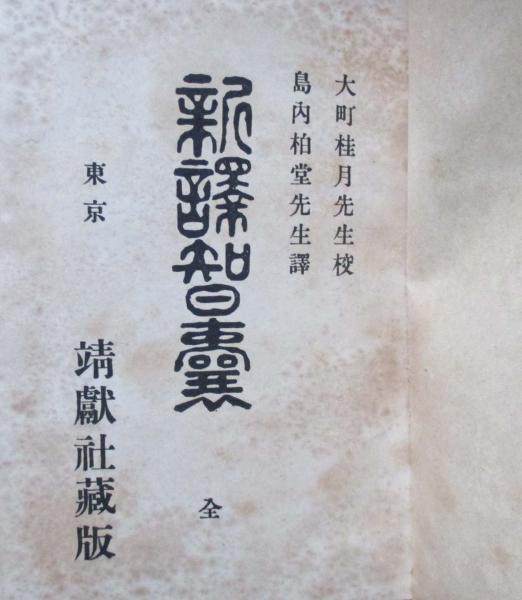 大町桂月先生校
島内柏堂先生譯
新譯智囊
全
東京
靖獻社藏版